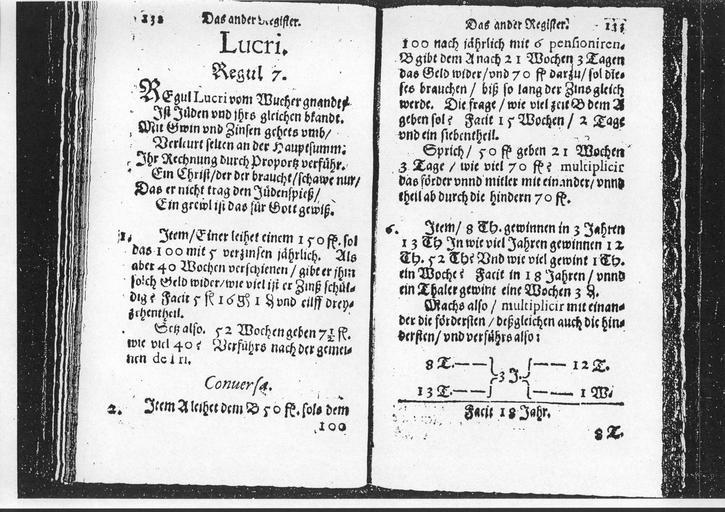 132 Das ander Register.
Lucri.
Regul 7.
REgul Lucri vom Wucher gnandt/
Ist Jüden vnd jhrs gleichen bkandt.
Mit Gwin vnd Zinsen gehets vmb/
Verleurt selten an der Hauptsumm.
Ihr Rechnung durch Proportz verführ.
Ein Christ/der der braucht/schawe nur/
Das er nicht trag den Jüdenspieß/
Ein grewl ist das für Gott gewiß.
1. Item/Einer leihet einem 150 fl. sol
das 100 mit 5 verzinsen jährlich. Als
aber 40 Wochen verschienen/gibt er jhm
solch Geld wider/wie viel ist er Zinß schül-
dig? Facit 5 fl 16 gl 1 ₰ vnd eilff drey-
zehentheil.
Setz also. 52 Wochen geben 7½ fl.
wie viel 40? Verführs nach der gemei-
nen detri.
Conuersa.
2. Item A leihet dem B 50 fl. sols dem
100
Das ander Register. 133
100 nach jährlich mit 6 pensioniren.
B gibt dem A nach 21 Wochen 3 Tagen
das Geld wider/vnd 70 fl darzu/sol die-
ses brauchen/biß so lang der Zins gleich
werde. Die frage/wie viel zeit B dem A
geben sol? Facit 15 Wochen/2 Tage
vnd ein siebentheil.
Sprich/50 fl geben 21 Wochen
3 Tage/wie viel 70 fl? multiplicir
das förder vnnd mitler mit einander/vnnd
theil ab durch die hindern 70 fl.
6. Item/8 Th. gewinnen in 3 Jahren
13 Th In wie viel Jahren gewinnen 12
Th. 52 Th? Vnd wie viel gewint 1 Th.
ein Woche? Facit in 18 Jahren/vnnd
ein Thaler gewint eine Wochen 3 ₰.
Machs also/multiplicir mit einan-
der die fördersten/deßgleichen auch die hin-
dersten/vnd verführs also:
8 T. 3 J. 12 T.
13 T. 1 W.
Facit 18 Jahr.
8 T.